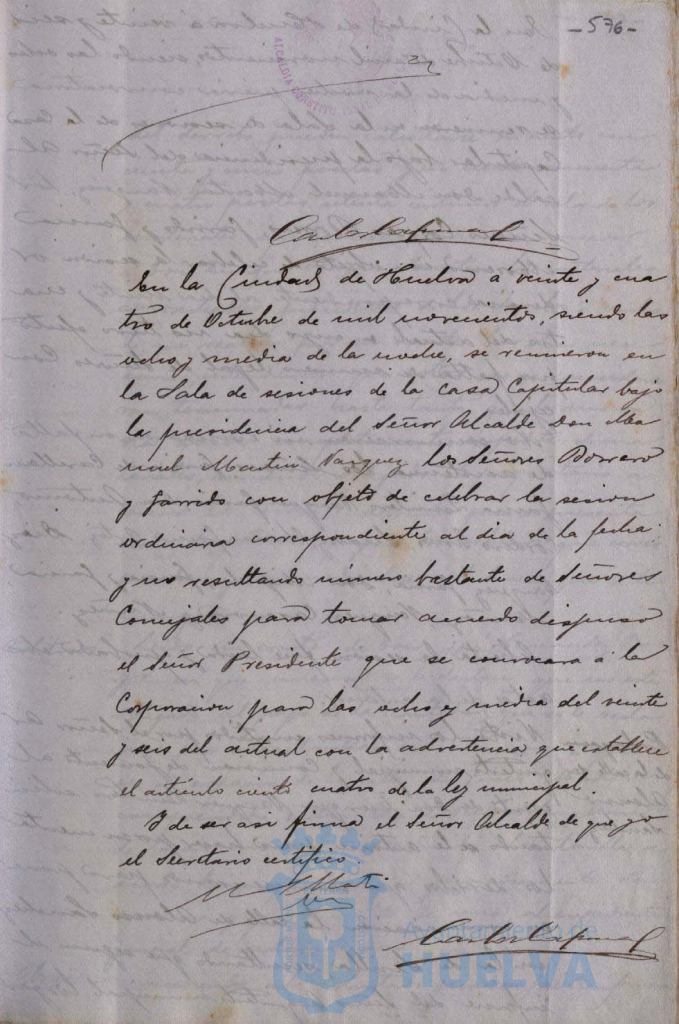 -576-
ALCALDIA CONSTITU
En la Ciudad de Huelva á veinte y cua
tro de Octubre de mil novecientos, siendo las
ocho y media de la noche, se reunieron en
la Sala de sesiones de la casa Capitular bajo
la presidencia del Señor Alcalde Don Ma
nuel Martin Vazquez los Señores Borrero
y Garrido con objeto de celebrar la sesion
ordinaria correspondiente al dia de la fecha:
y no resultando número bastante de Señores
Concejales para tomar acuerdo dispuso
el Señor Presidente que se convocara á la
Corporacion para las ocho y media del veinte
y seis del actual con la advertencia que establece
el artículo ciento cuatro de la ley municipal.
Y de ser asi firma el Señor Alcalde de que yo
el Secretario certifico.
Ayuntamiento de
HUELVA